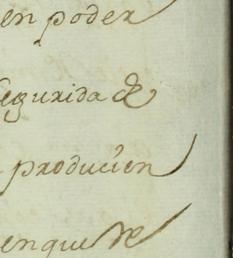 en poder
seguridad
producien
enque se